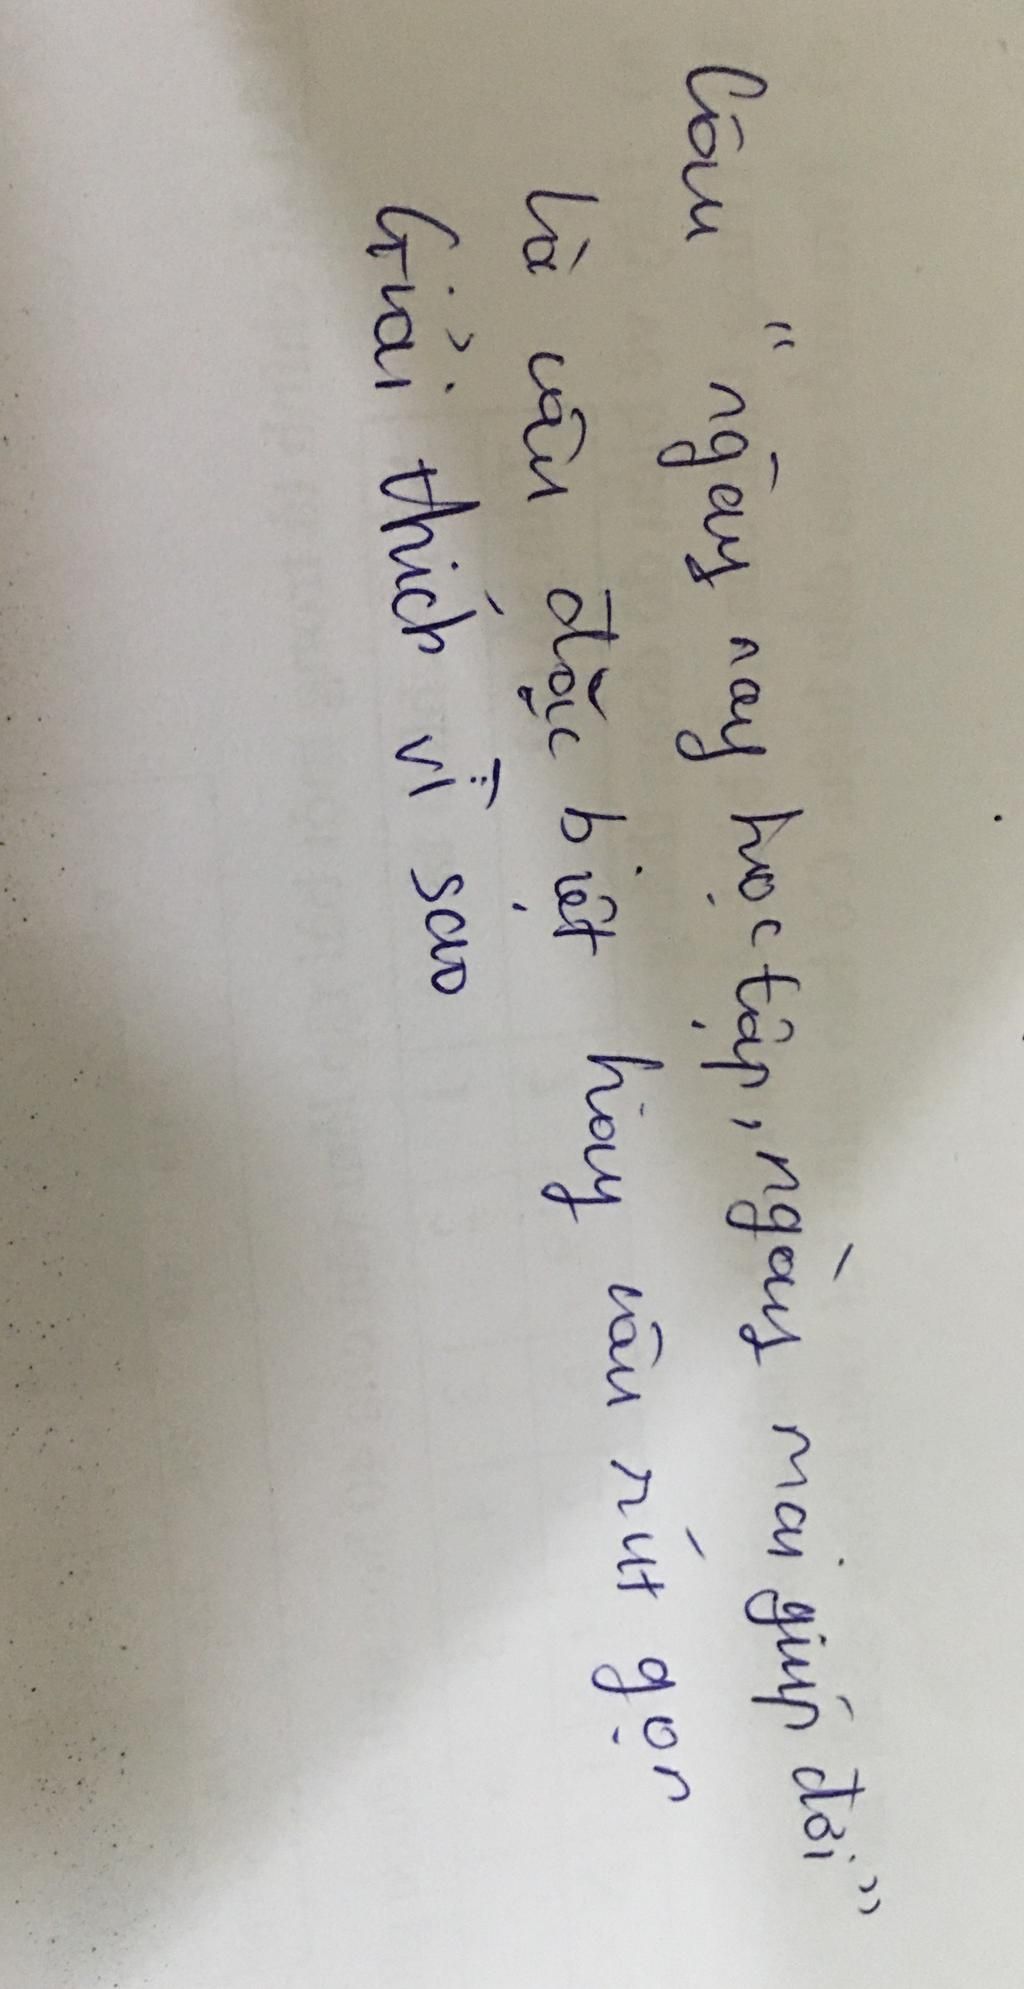 Câu " ngày nay học tập, ngày mai giúp đời"
là câu đặc biệt hay câu rút gọn
Giải thích vì sao